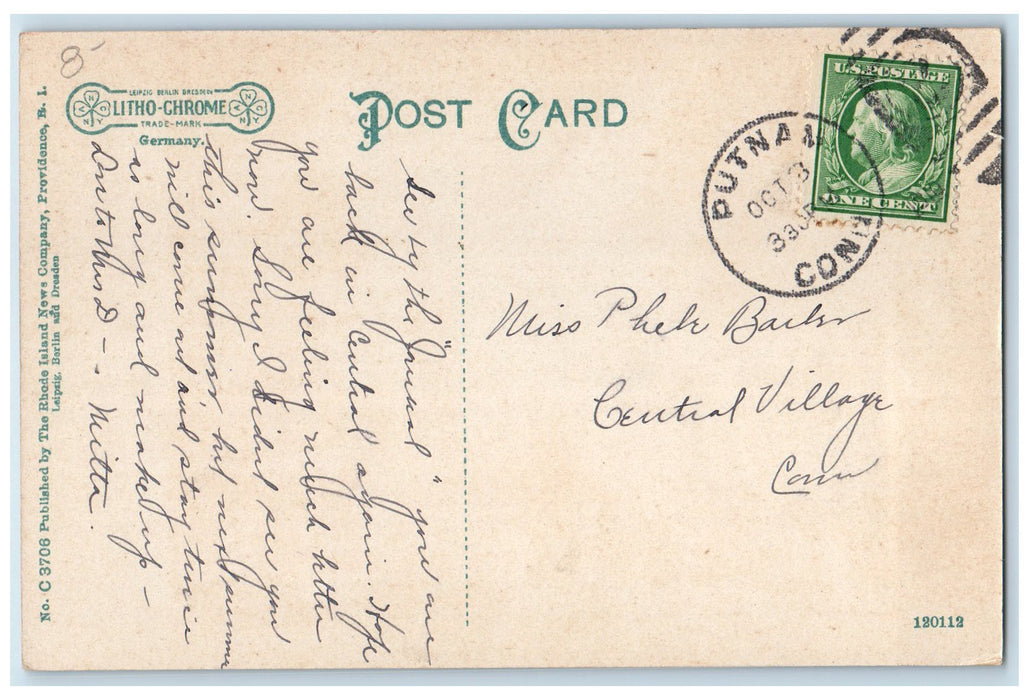 8
LEIPZIG BERLIN DRESDEN
LITHO-CHROME
TRADE-MARK
Germany.
POST CARD
U.S. POSTAGE
ONE CENT
PUTNAM
OCT 3
CONN
See by the "Journal" you are
back in Central again. Hope
you are feeling much better
now. Sorry I didnt see you
this summer but next summer
will come out and stay twice
as long and make up –
Dont Work D – – Nitta.
Miss Phebe
Central Village
Conn
No. C 3706 Published by The Rhode Island News Company, Providence, R. I.
Leipzig, Berlin and Dresden
120112